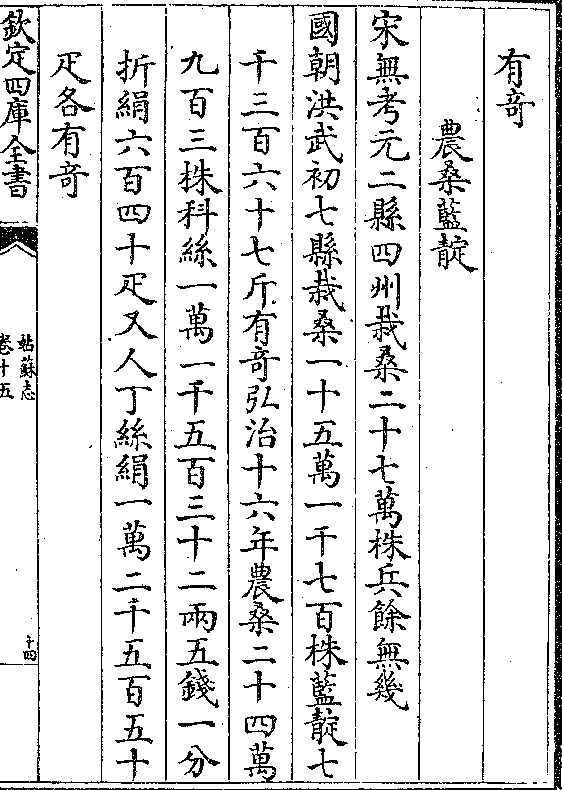 有奇
農桑藍靛
宋無考元二縣四州栽桑二十七萬株兵餘無幾
國朝洪武初七縣栽桑一十五萬一千七百株藍靛七
千三百六十七斤有奇弘治十六年農桑二十四萬
九百三株科絲一萬一千五百三十二兩五錢一分
折絹六百四十疋又人丁絲絹一萬二千五百五十
疋各有奇
欽定四庫全書
姑蘇志
卷十五
十四